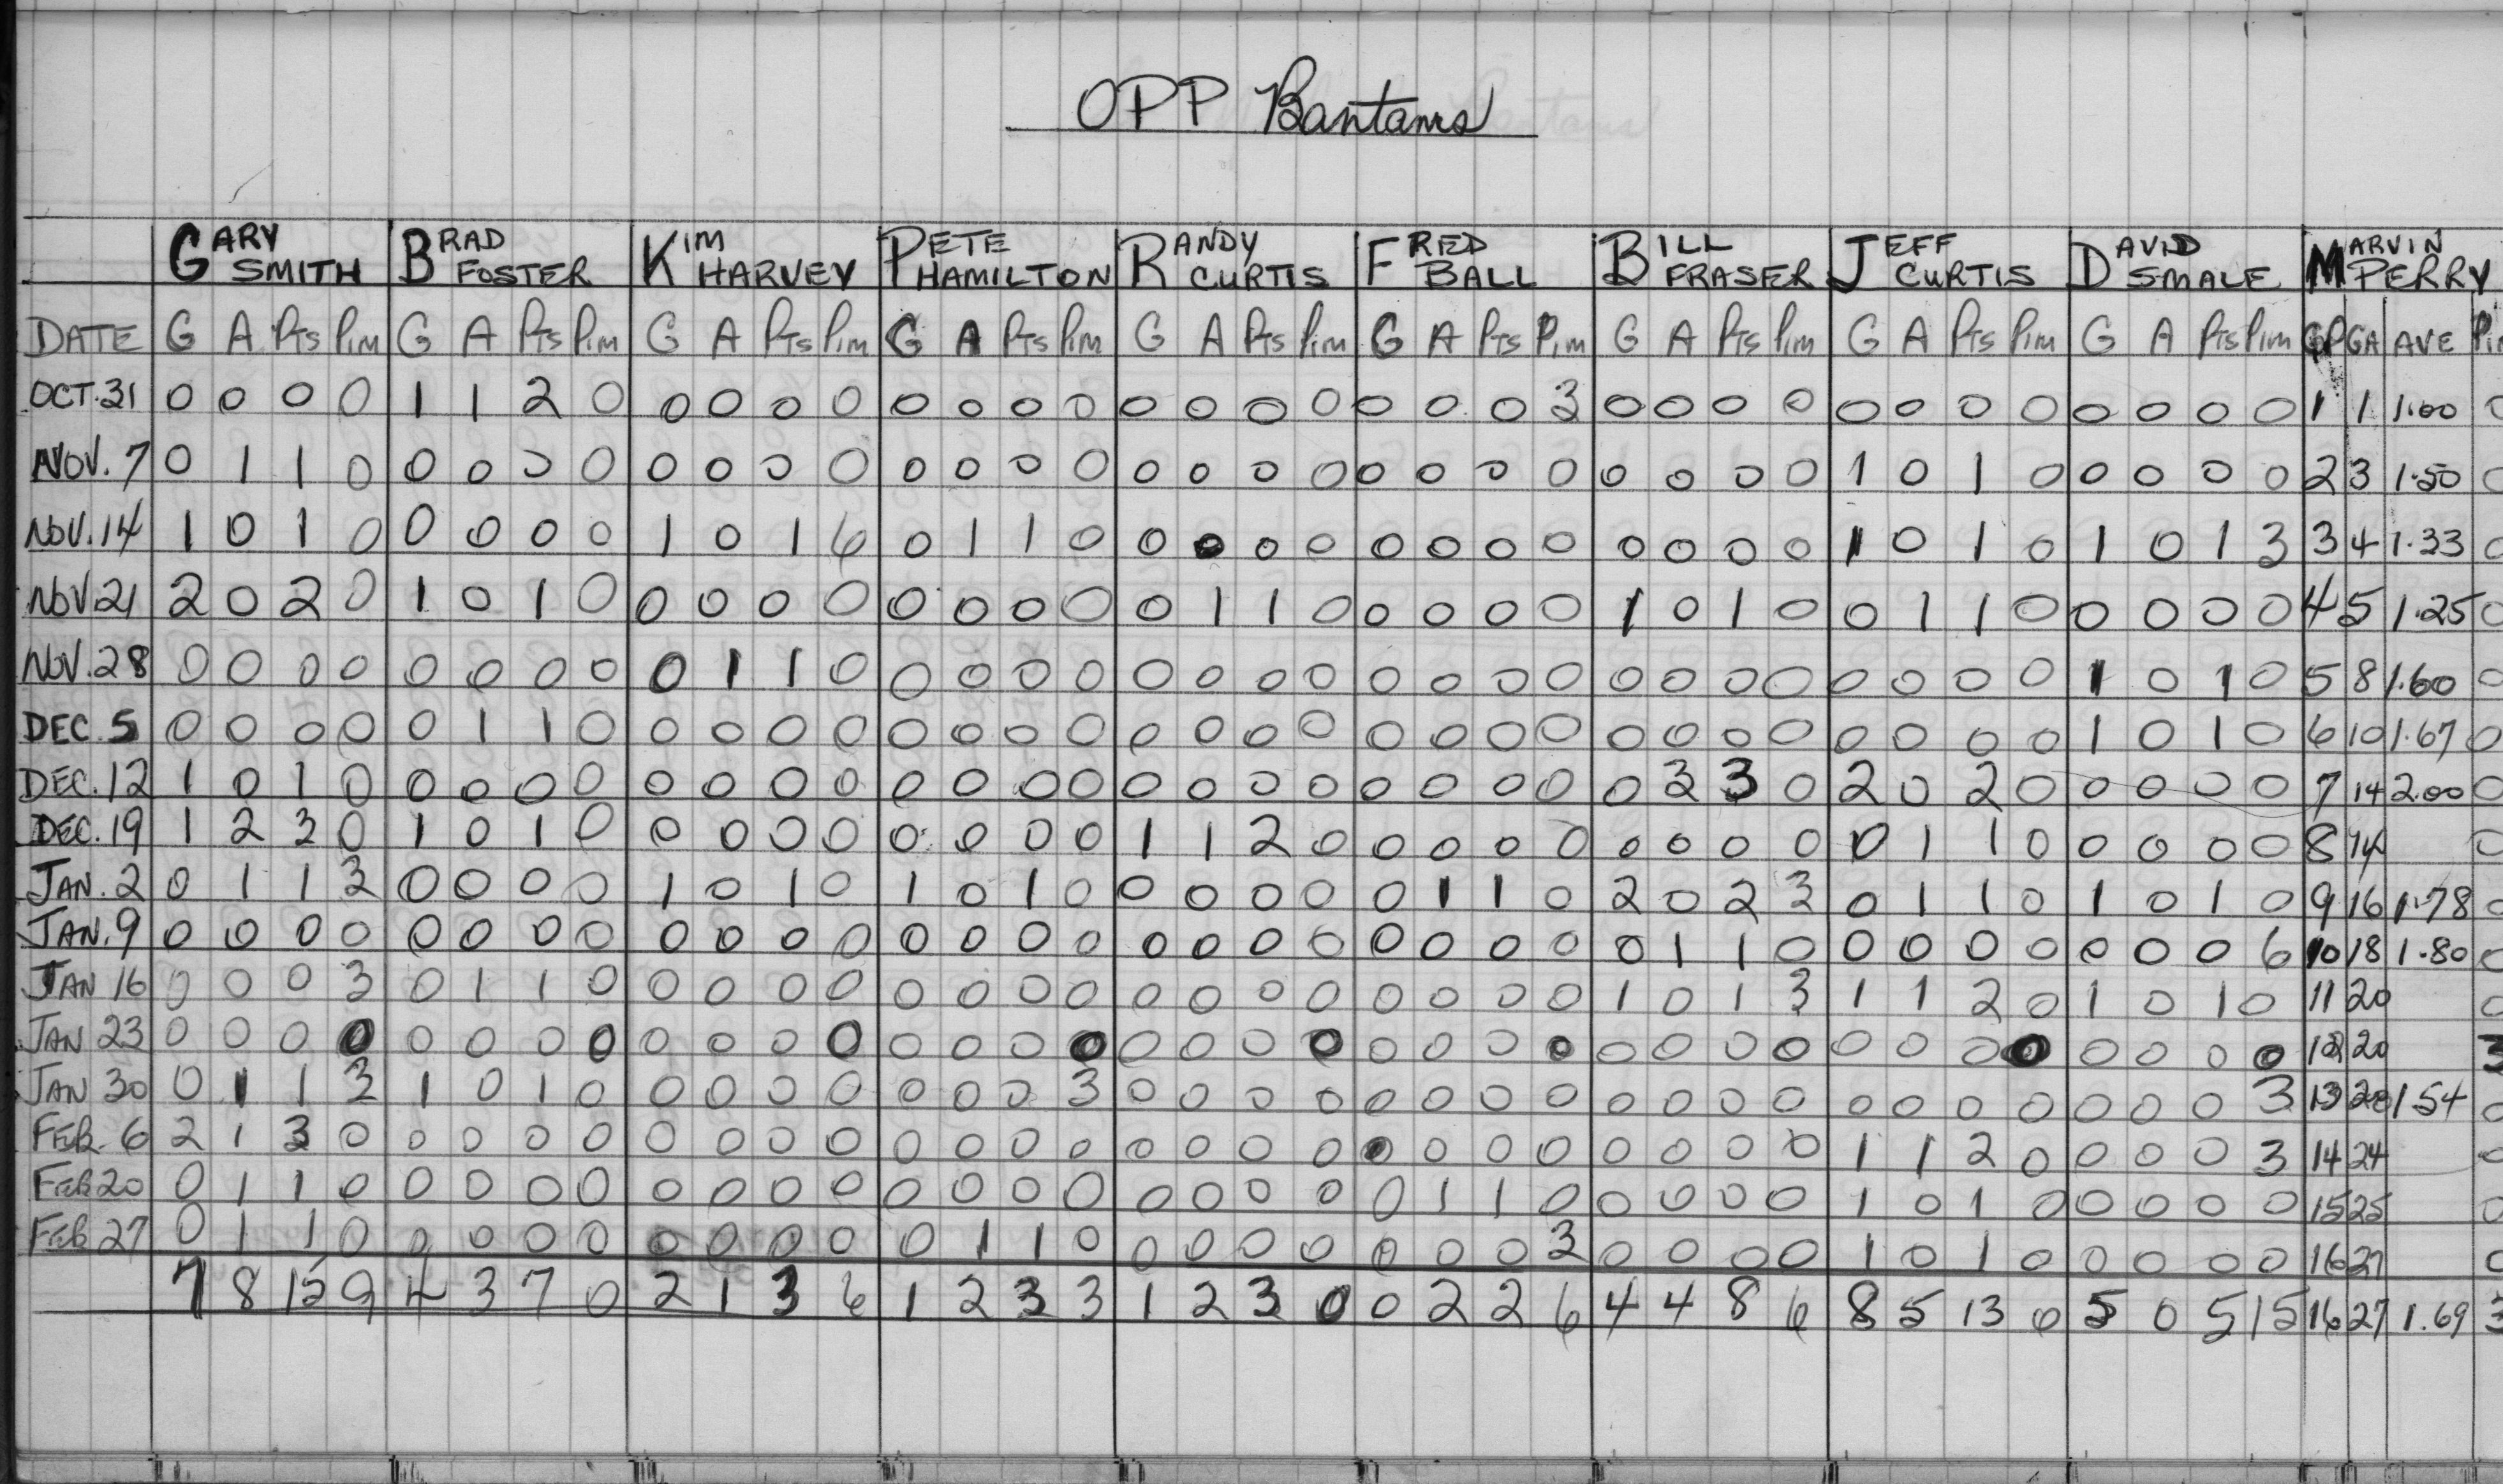 OPP Bantams
GARY SMITH BRAD FOSTER KIM HARVEY PETE HAMILTON RANDY CURTIS FRED BALL BILL FRASER JEFF CURTIS DAVID SMALE MARVIN PERRY
DATE G A Pts Pim G A Pts Pim G A Pts Pim G A Pts Pim G A Pts Pim G A Pts Pim G A Pts Pim G A Pts Pim G A Pts Pim GP GA AVE Pi
OCT.31 0 0 0 0 1 1 2 0 0 0 0 0 0 0 0 0 0 0 0 0 0 0 0 3 0 0 0 0 0 0 0 0 0 0 0 0 1 1 1.00 0
NOV. 7 0 1 1 0 0 0 0 0 0 0 0 0 0 0 0 0 0 0 0 0 0 0 0 0 0 0 0 0 1 0 1 0 0 0 0 0 2 3 1.50 0
NOV.14 1 0 1 0 0 0 0 0 1 0 1 6 0 1 1 0 0 0 0 0 0 0 0 0 0 0 0 0 1 0 1 0 1 0 1 3 3 4 1.33 0
NOV 21 2 0 2 0 1 0 1 0 0 0 0 0 0 0 0 0 0 1 1 0 0 0 0 0 1 0 1 0 0 1 1 0 0 0 0 0 4 5 1.25 0
NOV.28 0 0 0 0 0 0 0 0 0 1 1 0 0 0 0 0 0 0 0 0 0 0 0 0 0 0 0 0 0 0 0 0 1 0 1 0 5 8 1.60 0
DEC. 5 0 0 0 0 0 1 1 0 0 0 0 0 0 0 0 0 0 0 0 0 0 0 0 0 0 0 0 0 0 0 0 0 1 0 1 0 6 10 1.67 0
DEC.12 1 0 1 0 0 0 0 0 0 0 0 0 0 0 0 0 0 0 0 0 0 0 0 0 0 3 3 0 2 0 2 0 0 0 0 0 7 14 2.00 0
DEC.19 1 2 3 0 1 0 1 0 0 0 0 0 0 0 0 0 1 1 2 0 0 0 0 0 0 0 0 0 0 1 1 0 0 0 0 0 8 14 0
JAN. 2 0 1 1 3 0 0 0 0 1 0 1 0 1 0 1 0 0 0 0 0 0 1 1 0 2 0 2 3 0 1 1 0 1 0 1 0 9 16 1.78 0
JAN. 9 0 0 0 0 0 0 0 0 0 0 0 0 0 0 0 0 0 0 0 0 0 0 0 0 0 1 1 0 0 0 0 0 0 0 0 6 10 18 1.80 0
JAN 16 0 0 0 3 0 1 1 0 0 0 0 0 0 0 0 0 0 0 0 0 0 0 0 0 1 0 1 3 1 1 2 0 1 0 1 0 11 20 0
JAN 23 0 0 0 0 0 0 0 0 0 0 0 0 0 0 0 0 0 0 0 0 0 0 0 0 0 0 0 0 0 0 0 0 0 0 0 0 12 20 3
JAN 30 0 1 1 3 1 0 1 0 0 0 0 0 0 0 0 3 0 0 0 0 0 0 0 0 0 0 0 0 0 0 0 0 0 0 0 3 13 20 1.54 0
FEB. 6 2 1 3 0 0 0 0 0 0 0 0 0 0 0 0 0 0 0 0 0 0 0 0 0 0 0 0 0 1 1 2 0 0 0 0 3 14 24 0
FEB 20 0 1 1 0 0 0 0 0 0 0 0 0 0 0 0 0 0 0 0 0 0 1 1 0 0 0 0 0 1 0 1 0 0 0 0 0 15 25 0
FEB 27 0 1 1 0 0 0 0 0 0 0 0 0 0 1 1 0 0 0 0 0 0 0 0 3 0 0 0 0 1 0 1 0 0 0 0 0 16 27 0
7 8 15 9 4 3 7 0 2 1 3 6 1 2 3 3 1 2 3 0 0 2 2 6 4 4 8 6 8 5 13 0 5 0 5 15 16 27 1.69 3